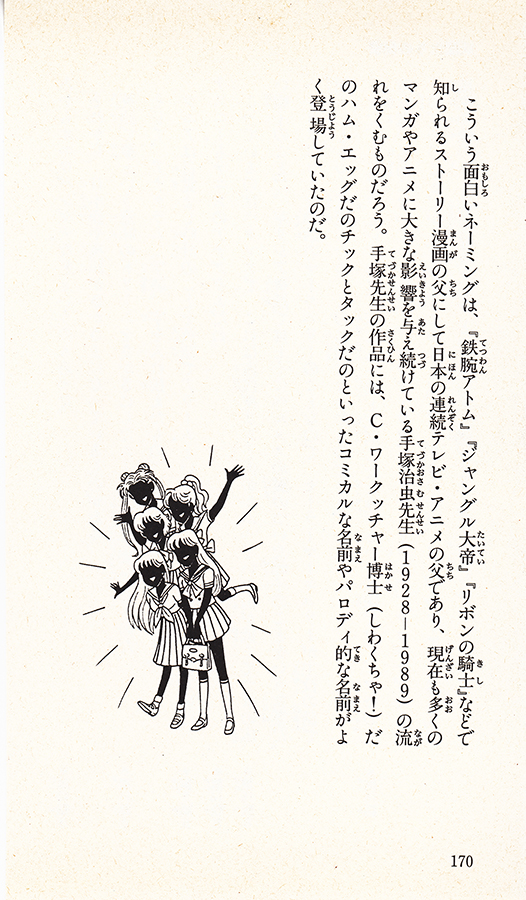 こういう面白いネーミングは、『鉄腕アトム』『ジャングル大帝』『リボンの騎士』などで
知られるストーリー漫画の父にして日本の連続テレビ・アニメの父であり、現在も多くの
マンガやアニメに大きな影響を与え続けている手塚治虫先生（1928－1989）の流
れをくむものだろう。手塚先生の作品には、C・ワークッチャー博士（しわくちゃ！）だ
のハム・エッグだのチックとタックだのといったコミカルな名前やパロディ的な名前がよ
く登場していたのだ。
170